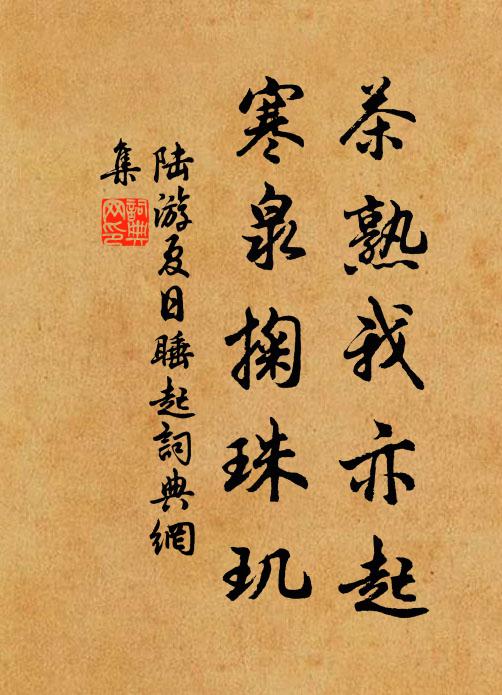 茶熟我亦起
寒泉掬珠玑
陆游夏日睡起詞典網
集
詞典
网印